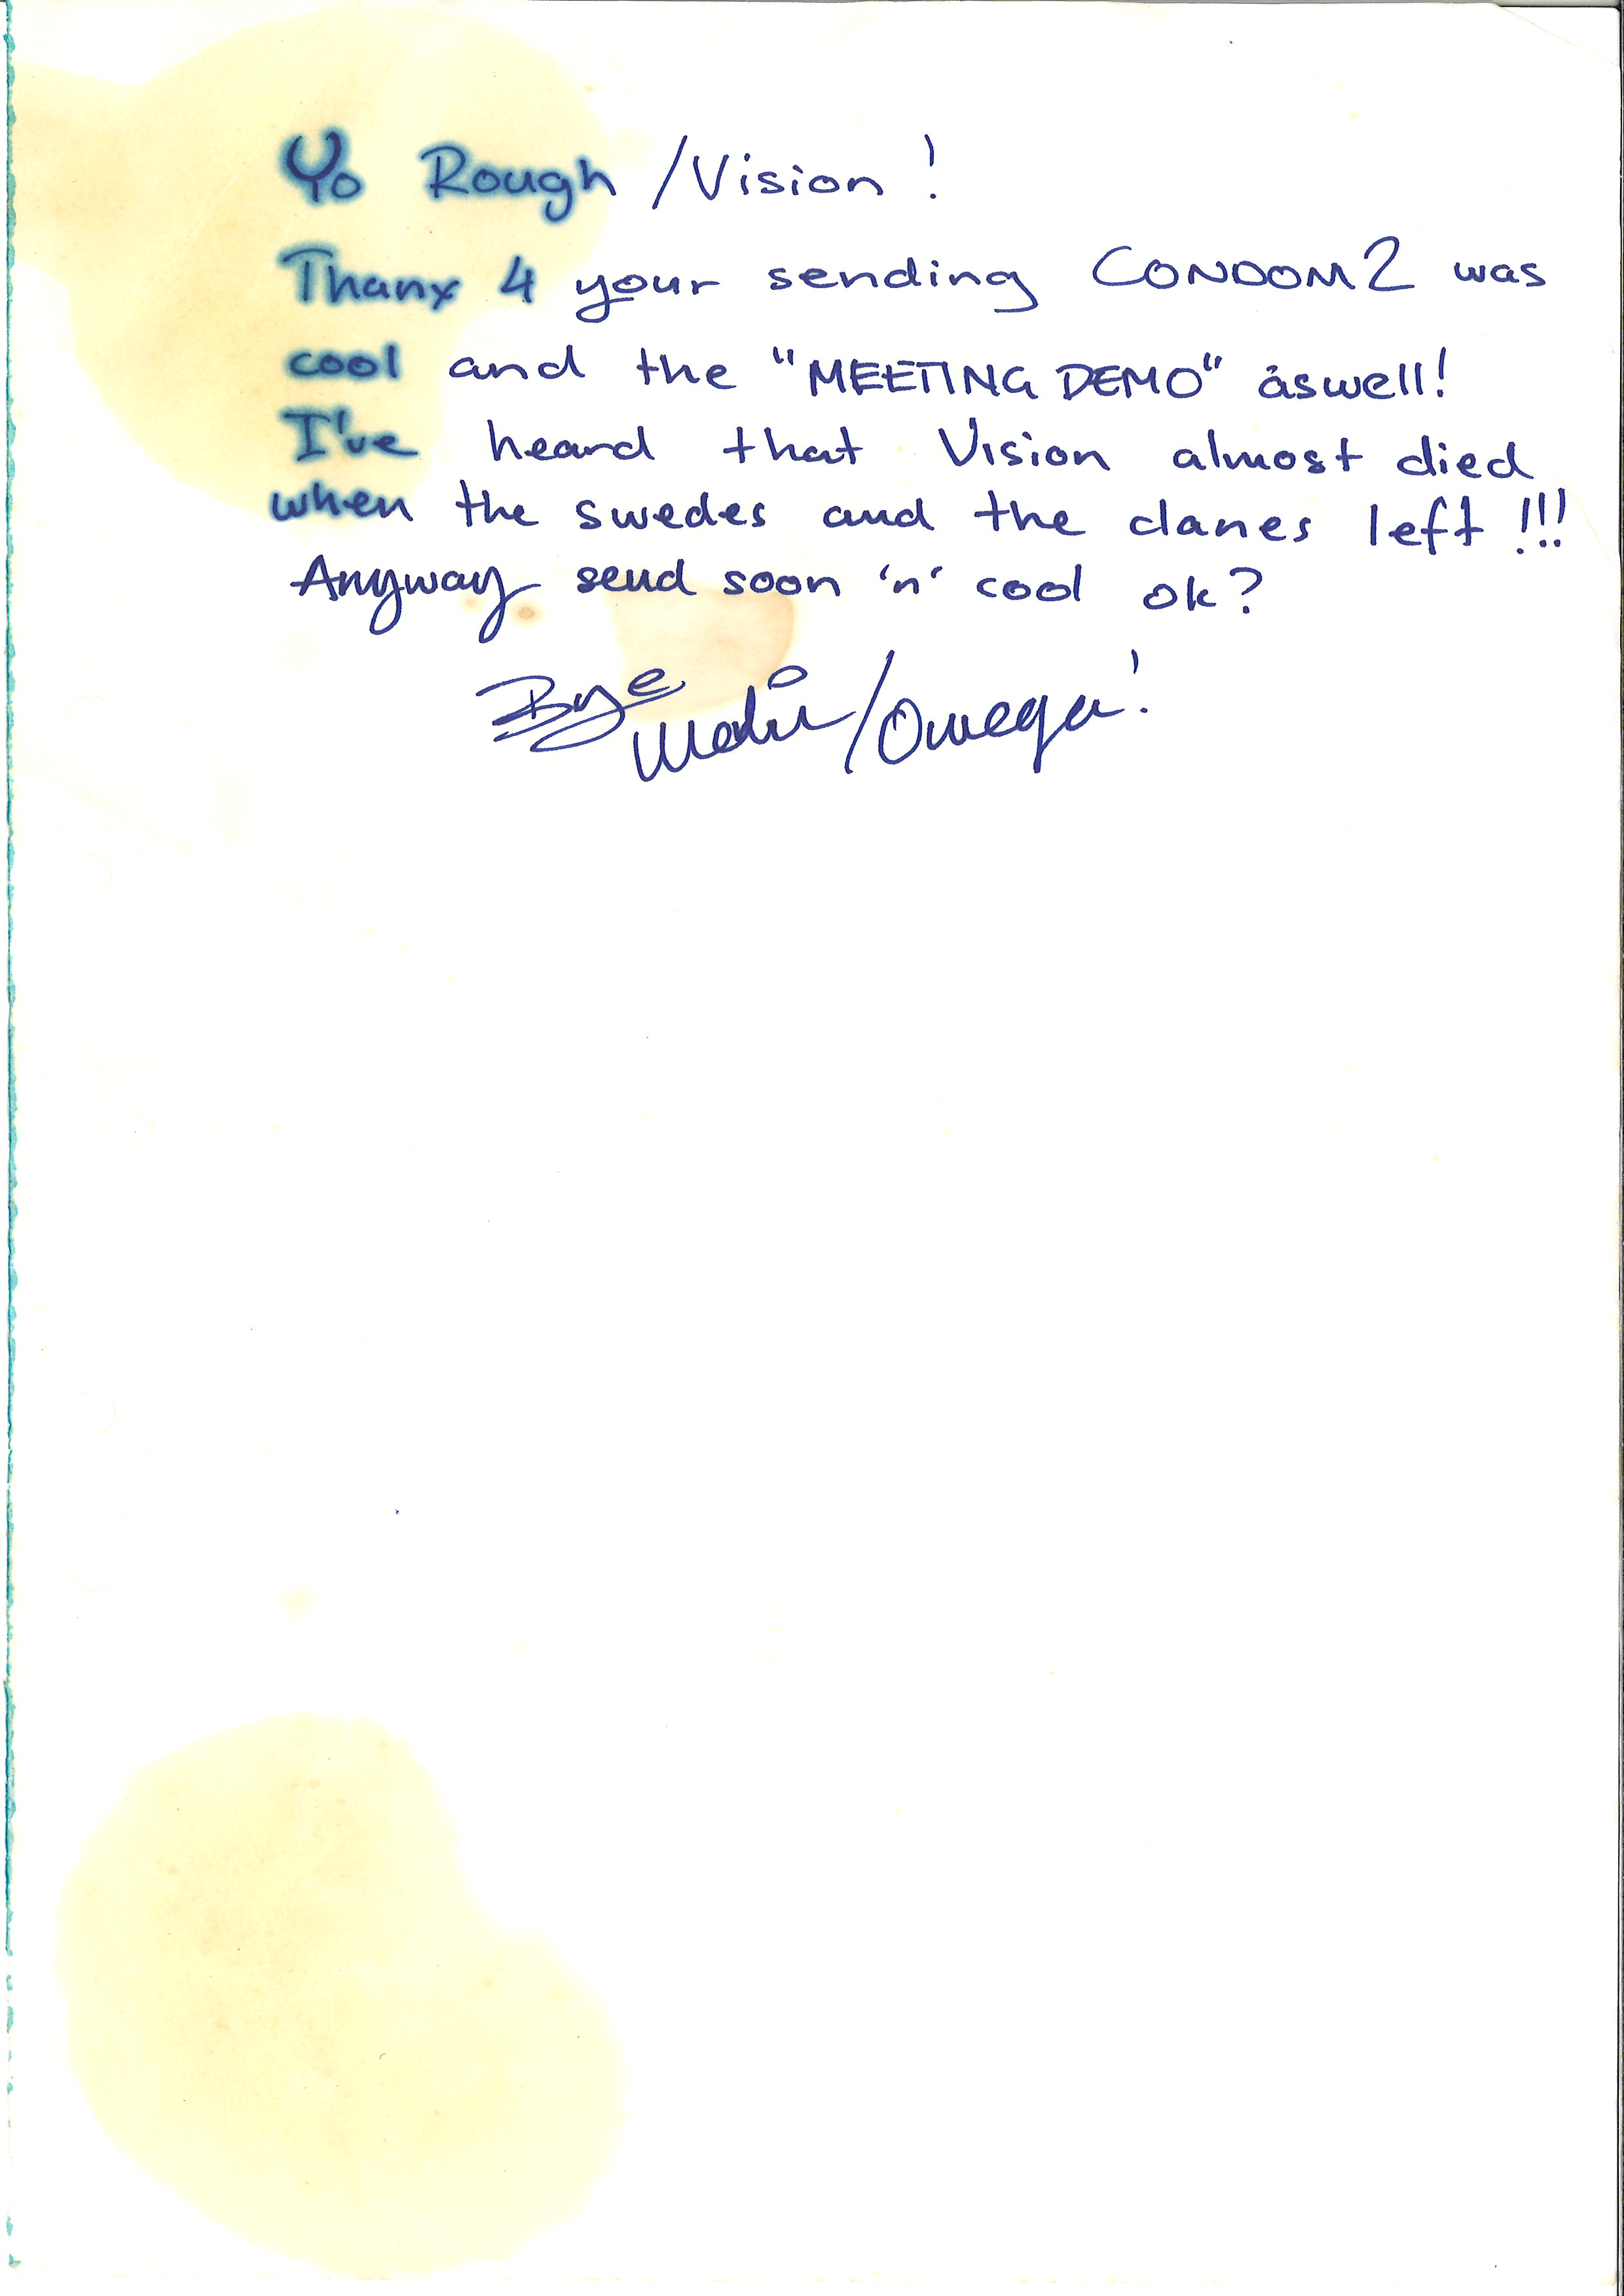 Yo Rough /Vision !
Thanx 4 your sending CONDOM 2 was
cool and the "MEETING DEMO" aswell!
I've heard that Vision almost died
when the swedes and the danes left !!!
Anyway send soon 'n' cool ok?
Bye
/Omega!